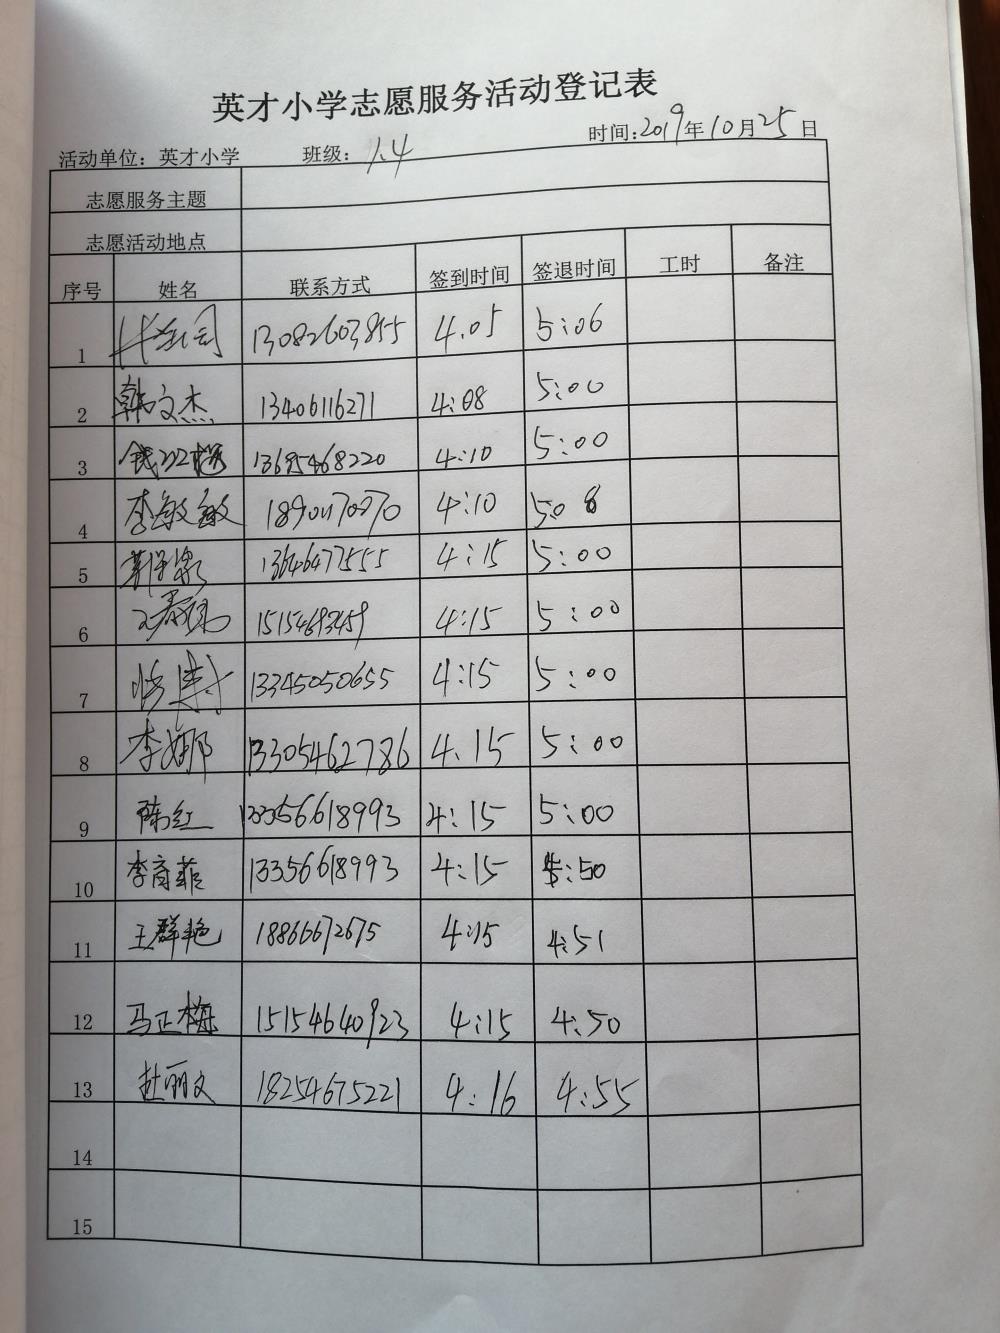 英才小学志愿服务活动登记表
时间:2019年10月25日
活动单位：英才小学 班级：1.4
志愿服务主题
志愿活动地点
序号 姓名 联系方式 签到时间 签退时间 工时 备注
1 13082603855 4.05 5:06
2 韩文杰 13406116271 4:08 5:00
3 13695468220 4:10 5:00
4 李敏敏 4:10 5:08
5 13646477555 4:15 5:00
6 15154693459 4:15 5:00
7 13345050655 4:15 5:00
8 李娜 13305462786 4.15 5:00
9 陈红 13356618993 4:15 5:00
10 李育菲 13356618993 4:15 :50
11 王群艳 18866672675 4:15 4:51
12 马正梅 15154640923 4:15 4:50
13 杜丽文 18254675221 4:16 4:55
14
15